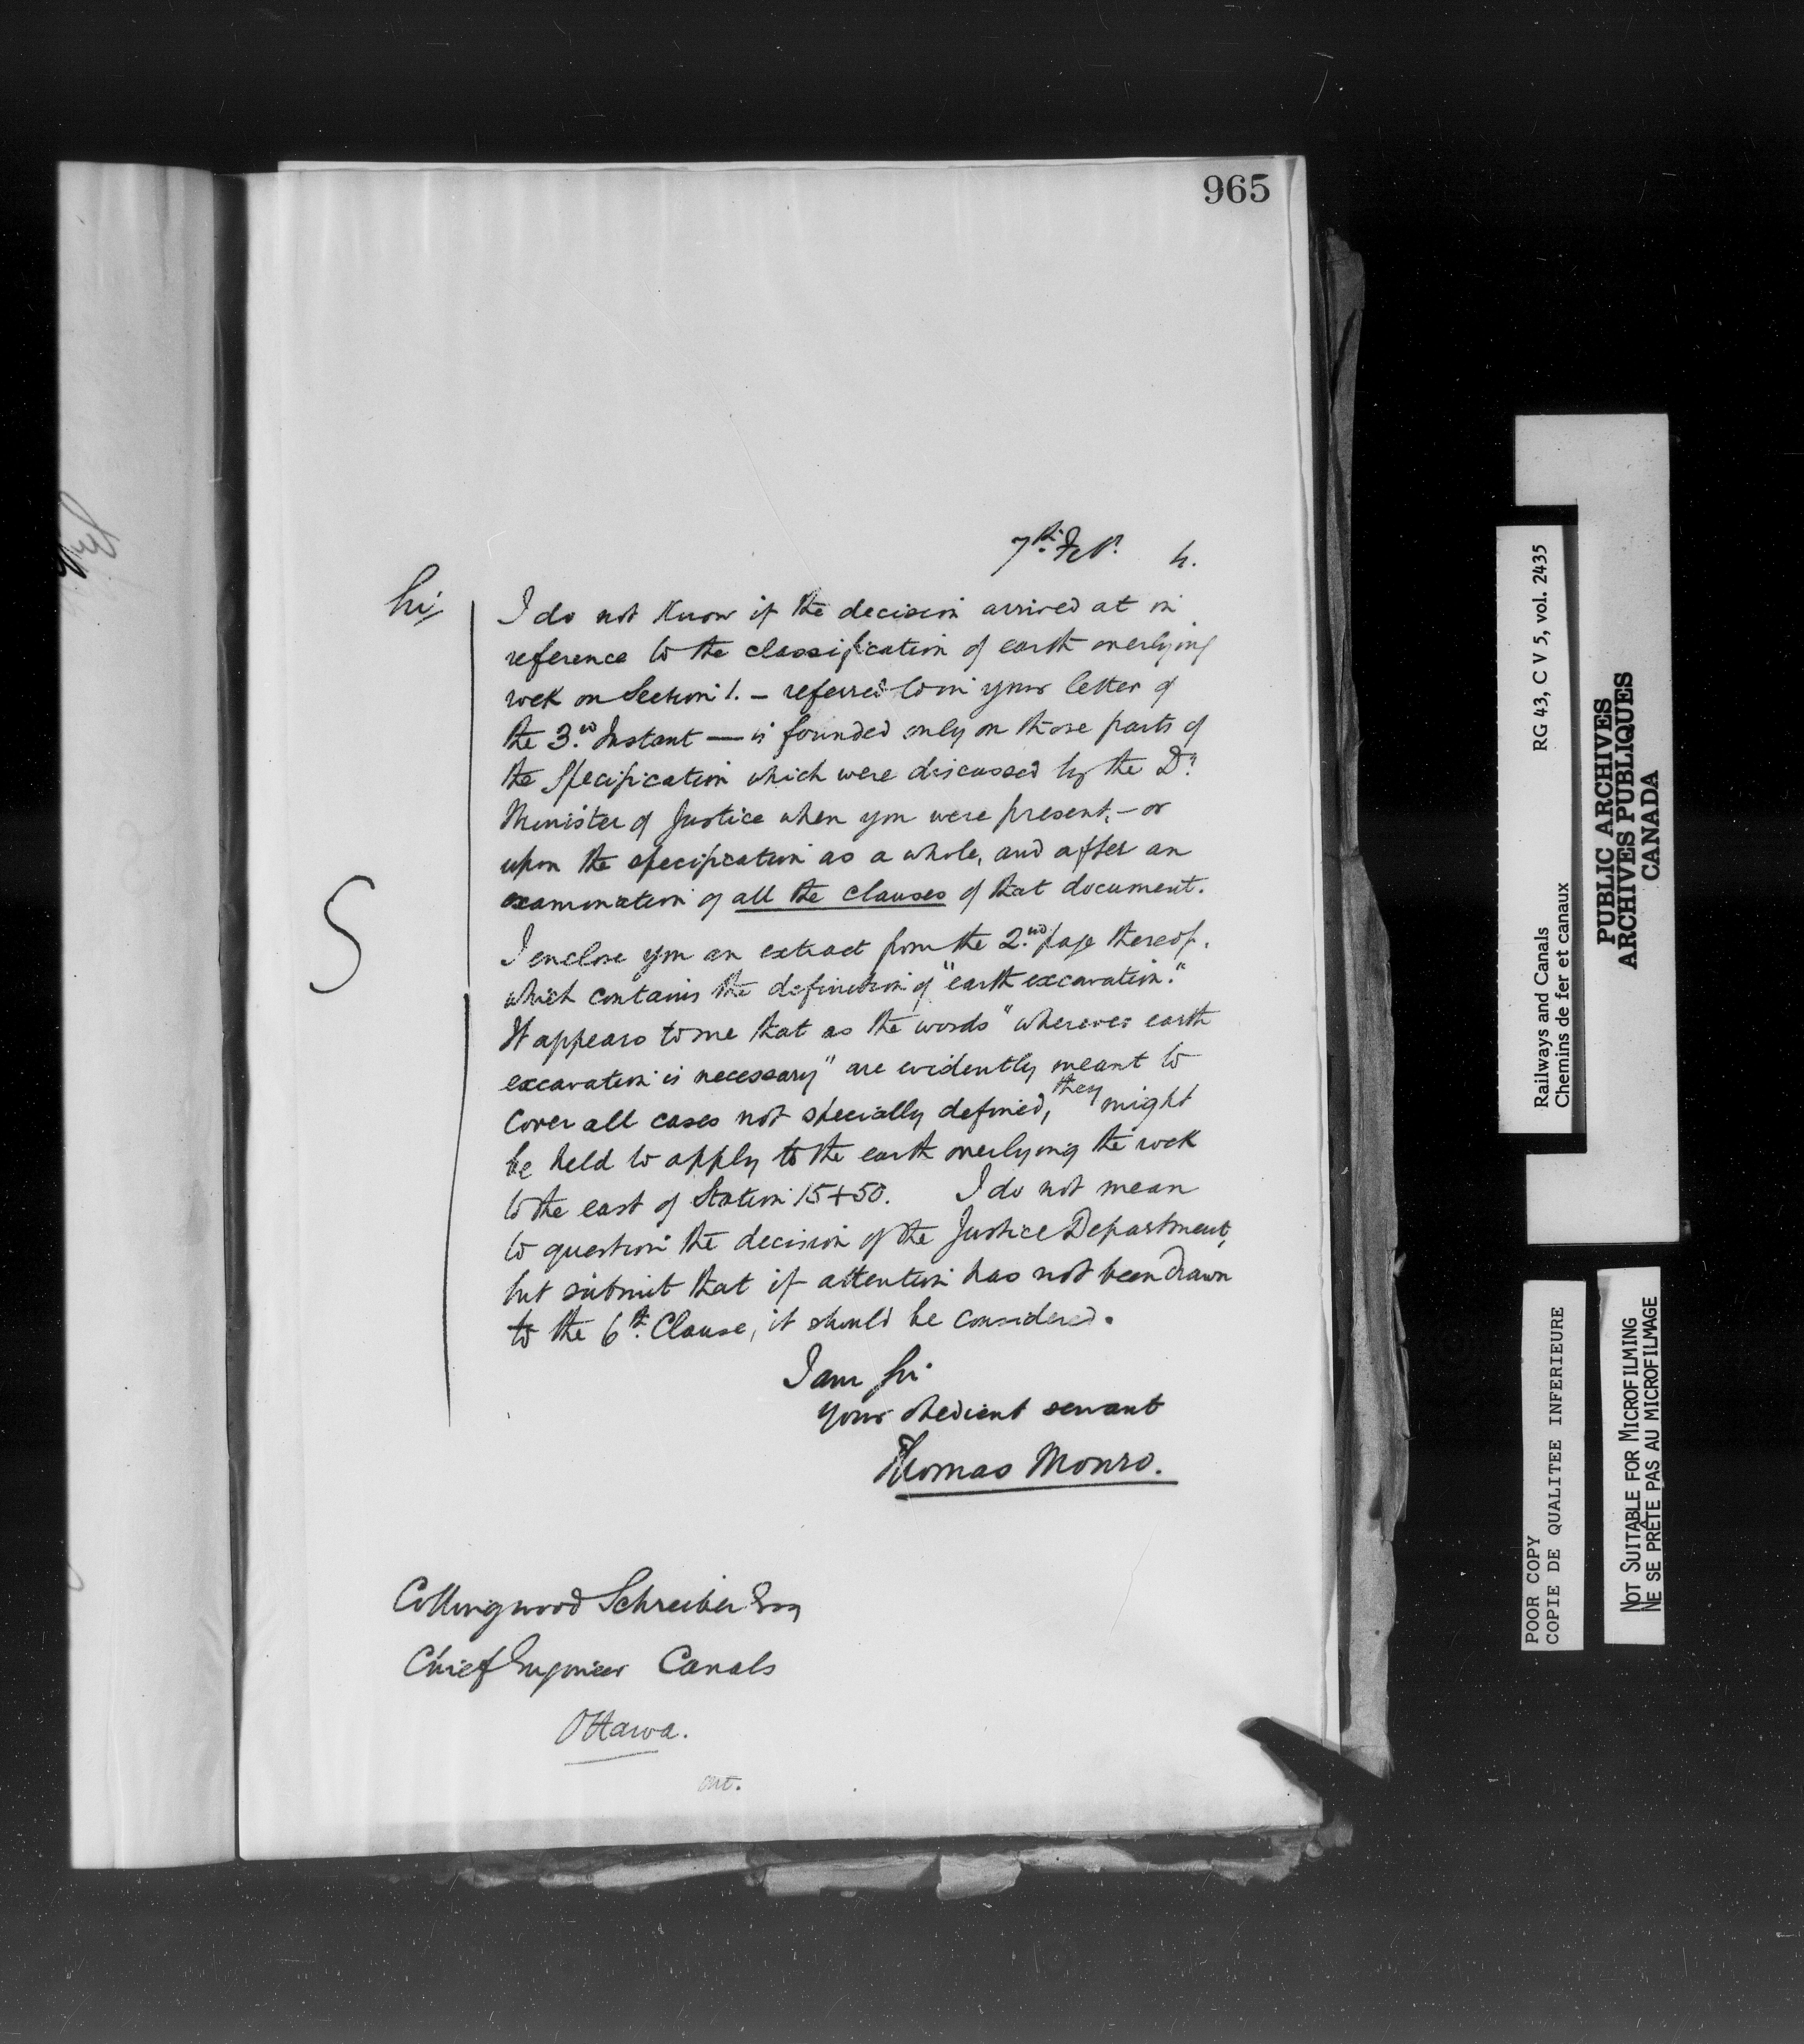 965
7th Feby. 4.
Sir,
I do not know if the decision arrived at in
reference to the classification of earth overlying
rock on Section 1. — referred to in your letter of
the 3rd Instant — is founded only on those parts of
the Specification which were discussed by the Dy
Minister of Justice when you were present, — or
upon the specification as a whole, and after an
examination of all the clauses of that document.
I enclose you an extract from the 2nd page thereof,
which contains the definition of "earth excavation."
It appears to me that as the words "wherever earth
excavation is necessary" are evidently meant to
cover all cases not specially defined, they might
be held to apply to the earth overlying the rock
to the east of Station 15+50. I do not mean
to question the decision of the Justice Department,
but submit that if attention has not been drawn
to the 6th Clause, it should be considered.
I am Sir
your obedient servant
Thomas Monro.
Collingwood Schreiber Esq
Chief Engineer Canals
Ottawa.
Ont.
S
Railways and Canals RG 43, C V 5, vol. 2435
Chemins de fer et canaux
PUBLIC ARCHIVES
ARCHIVES PUBLIQUES
CANADA
POOR COPY
COPIE DE QUALITEE INFERIEURE
NOT SUITABLE FOR MICROFILMING
NE SE PRÊTE PAS AU MICROFILMAGE